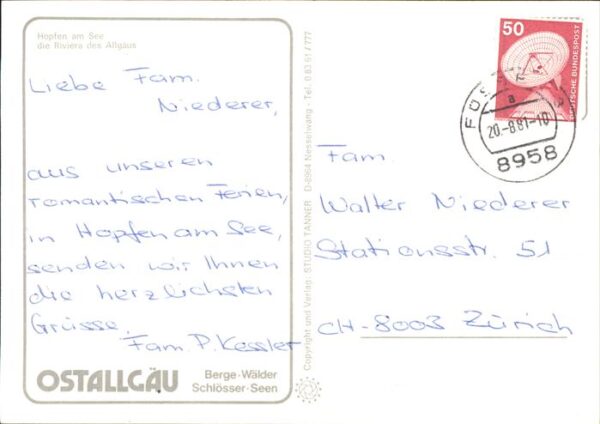 Hopfen am See
die Riviera des Allgäus
Liebe Fam.
Niederer,
aus unseren
romantischen Ferien,
in Hopfen am See,
senden wir Ihnen
die herzlichsten
Grüsse.
Fam. P. Kessler
OSTALLGÄU
Berge-Wälder
Schlösser-Seen
Copyright und Verlag: STUDIO TANNER · D-8964 Nesselwang - Tel. 0 83 61 / 777
50
DEUTSCHE BUNDESPOST
a
20.-8.81-10
8958
Fam.
Walter Niederer
Stationsstr. 51
CH-8003 Zürich